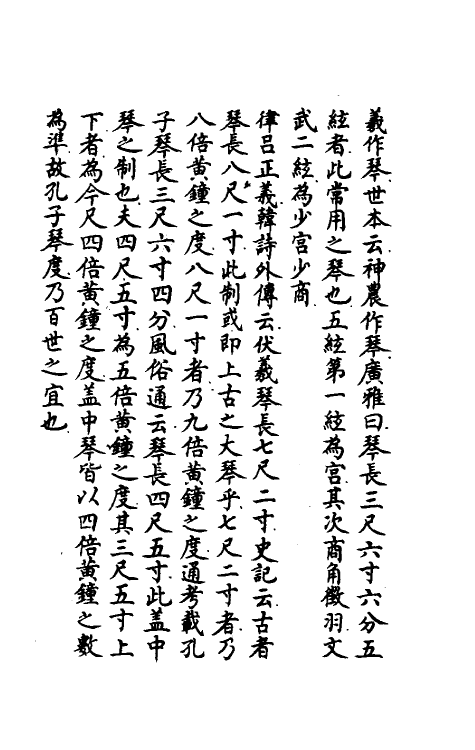 羲作琴世本云神農作琴廣雅曰琴長三尺六寸六分五
絃者此常用之琴也五絃第一絃為宮其次商角徵羽文
武二絃為少宮少商
律呂正義韓詩外傳云伏羲琴長七尺二寸史記云古者
琴長八尺一寸此制或即上古之大琴乎七尺二寸者乃
八倍黃鐘之度八尺一寸者乃九倍黃鐘之度通考載孔
子琴長三尺六寸四分風俗通云琴長四尺五寸此蓋中
琴之制也夫四尺五寸為五倍黃鐘之度其三尺五寸上
下者為今尺四倍黃鐘之度蓋中琴皆以四倍黃鐘之數
為準故孔子琴度乃百世之宜也